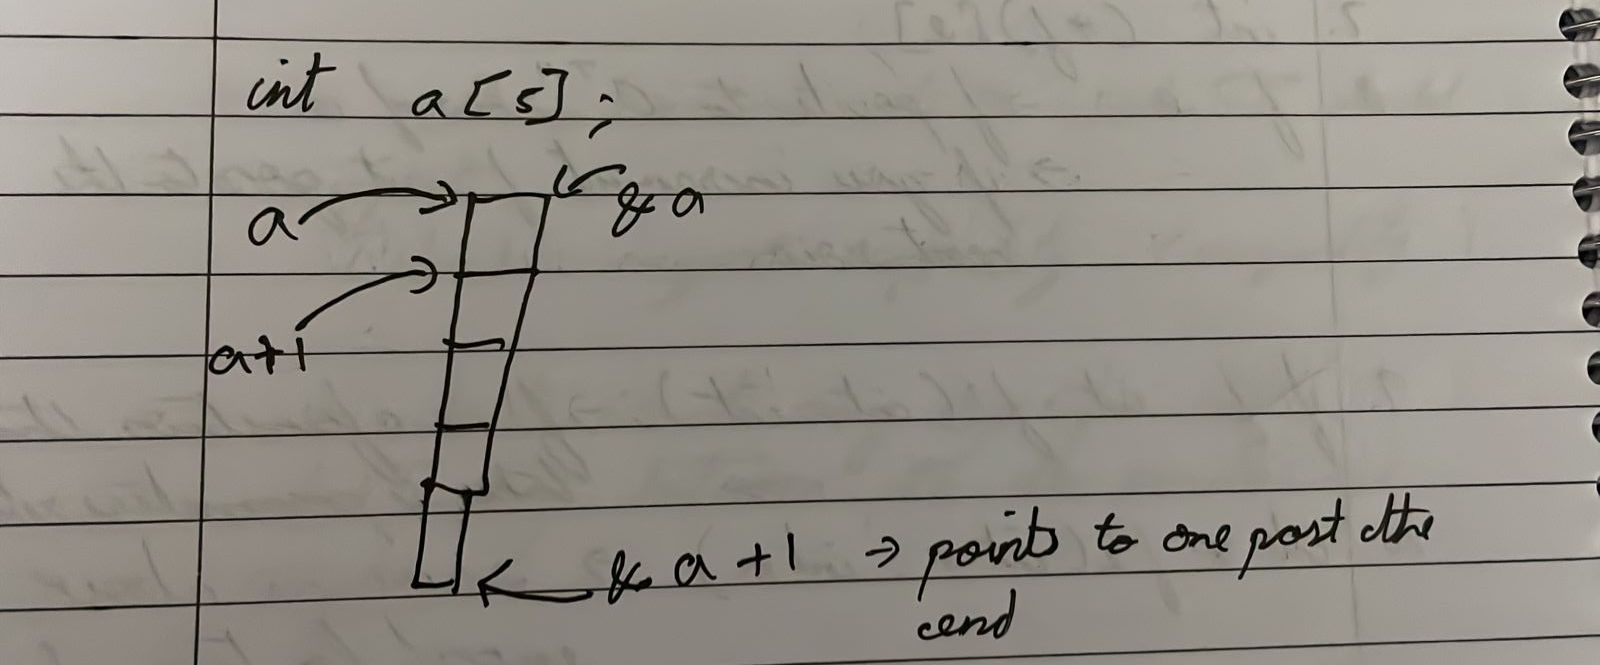 int a[5];
a
&a
a+1
&a+1 → points to one past the
end